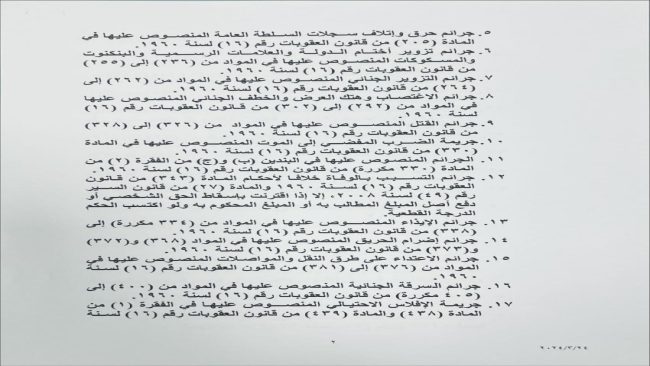 ٥. جرائم حرق وإتلاف سجلات السلطة العامة المنصوص عليها في
المادة (٢٠٥) من قانون العقوبات رقم (١٦) لسنة ١٩٦٠.
٦. جرائم تزوير أختام الدولة والعلامات الرسمية والبنكنوت
والمسكوكات المنصوص عليها في المواد من (٢٣٦) إلى (٢٥٥)
من قانون العقوبات رقم (١٦) لسنة ١٩٦٠.
٧. جرائم التزوير الجنائي المنصوص عليها في المواد من (٢٦٢) إلى
(٢٦٤) من قانون العقوبات رقم (١٦) لسنة ١٩٦٠.
٨. جرائم الاغتصاب وهتك العرض والخطف الجنائي المنصوص عليها
في المواد من (٢٩٢) إلى (٣٠٢) من قانون العقوبات رقم (١٦)
لسنة ١٩٦٠.
٩. جرائم القتل المنصوص عليها في المواد من (٣٢٦) إلى (٣٢٨)
من قانون العقوبات رقم (١٦) لسنة ١٩٦٠.
١٠. جريمة الضرب المفضي إلى الموت المنصوص عليها في المادة
(٣٣٠) من قانون العقوبات رقم (١٦) لسنة ١٩٦٠.
١١. الجرائم المنصوص عليها في البندين (ب) و(ج) من الفقرة (٢) من
المادة (٣٣٠ مكررة) من قانون العقوبات رقم (١٦) لسنة ١٩٦٠.
١٢. جرائم التسبب بالوفاة خلافاً لأحكام المادة (٣٤٣) من قانون
العقوبات رقم (١٦) لسنة ١٩٦٠ والمادة (٢٧) من قانون السير
رقم (٤٩) لسنة ٢٠٠٨، إلا إذا اقترنت بإسقاط الحق الشخصي أو
دفع أصل المبلغ المطالب به أو المبلغ المحكوم به ولو اكتسب الحكم
الدرجة القطعية.
١٣. جرائم الإيذاء المنصوص عليها في المواد من (٣٣٤ مكررة) إلى
(٣٣٨) من قانون العقوبات رقم (١٦) لسنة ١٩٦٠.
١٤. جرائم إضرام الحريق المنصوص عليها في المواد (٣٦٨) و(٣٧٢)
و(٣٧٣) من قانون العقوبات رقم (١٦) لسنة ١٩٦٠.
١٥. جرائم الاعتداء على طرق النقل والمواصلات المنصوص عليها في
المواد من (٣٧٦) إلى (٣٨١) من قانون العقوبات رقم (١٦) لسنة
١٩٦٠.
١٦. جرائم السرقة الجنائية المنصوص عليها في المواد من (٤٠٠) إلى
(٤٠٥ مكررة) من قانون العقوبات رقم (١٦) لسنة ١٩٦٠.
١٧. جريمة الإفلاس الاحتيالي المنصوص عليها في الفقرة (١) من
المادة (٤٣٨) والمادة (٤٣٩) من قانون العقوبات رقم (١٦) لسنة
٢
٢٠٢٤/٣/٢٤